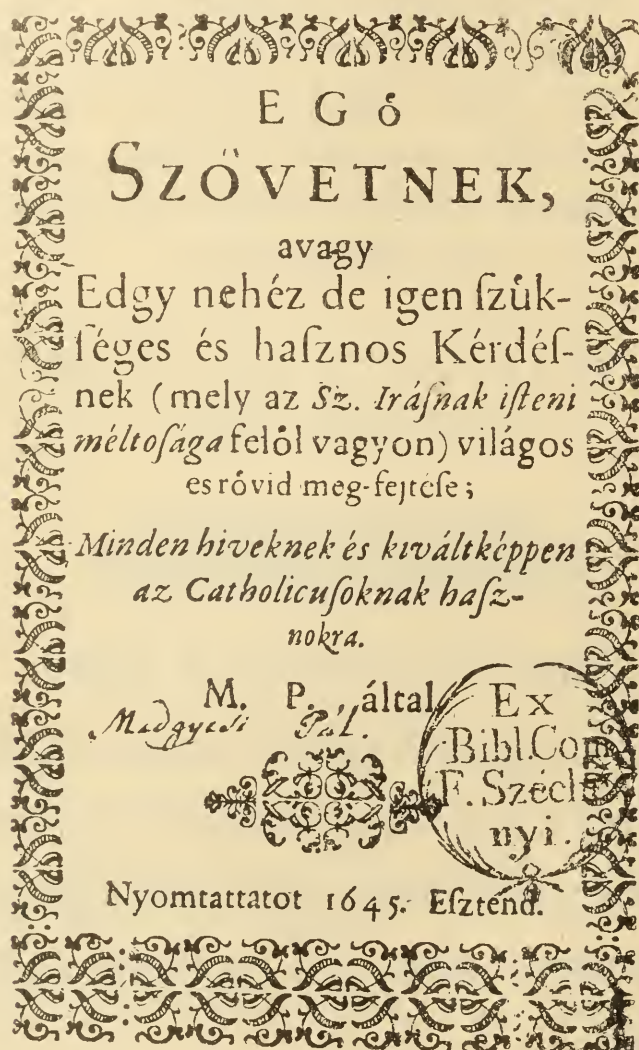 EGó
SZÖVETNEK,
avagy
Edgy nehéz de igen ſzük-
ſéges és haſznos Kérdéſ-
nek (mely az Sz. Iráſnak iſteni
méltoſága felöl vagyon) világos
es rövid meg-fejtéſe;
Minden hiveknek és kıváltképpen
az Catholicuſoknak haſz-
nokra.
M. P. által,
Medgyesi Pál.
Ex
Bibl. Com.
F. Széché
nyi.
Nyomtattatot 1645. Eſztend.